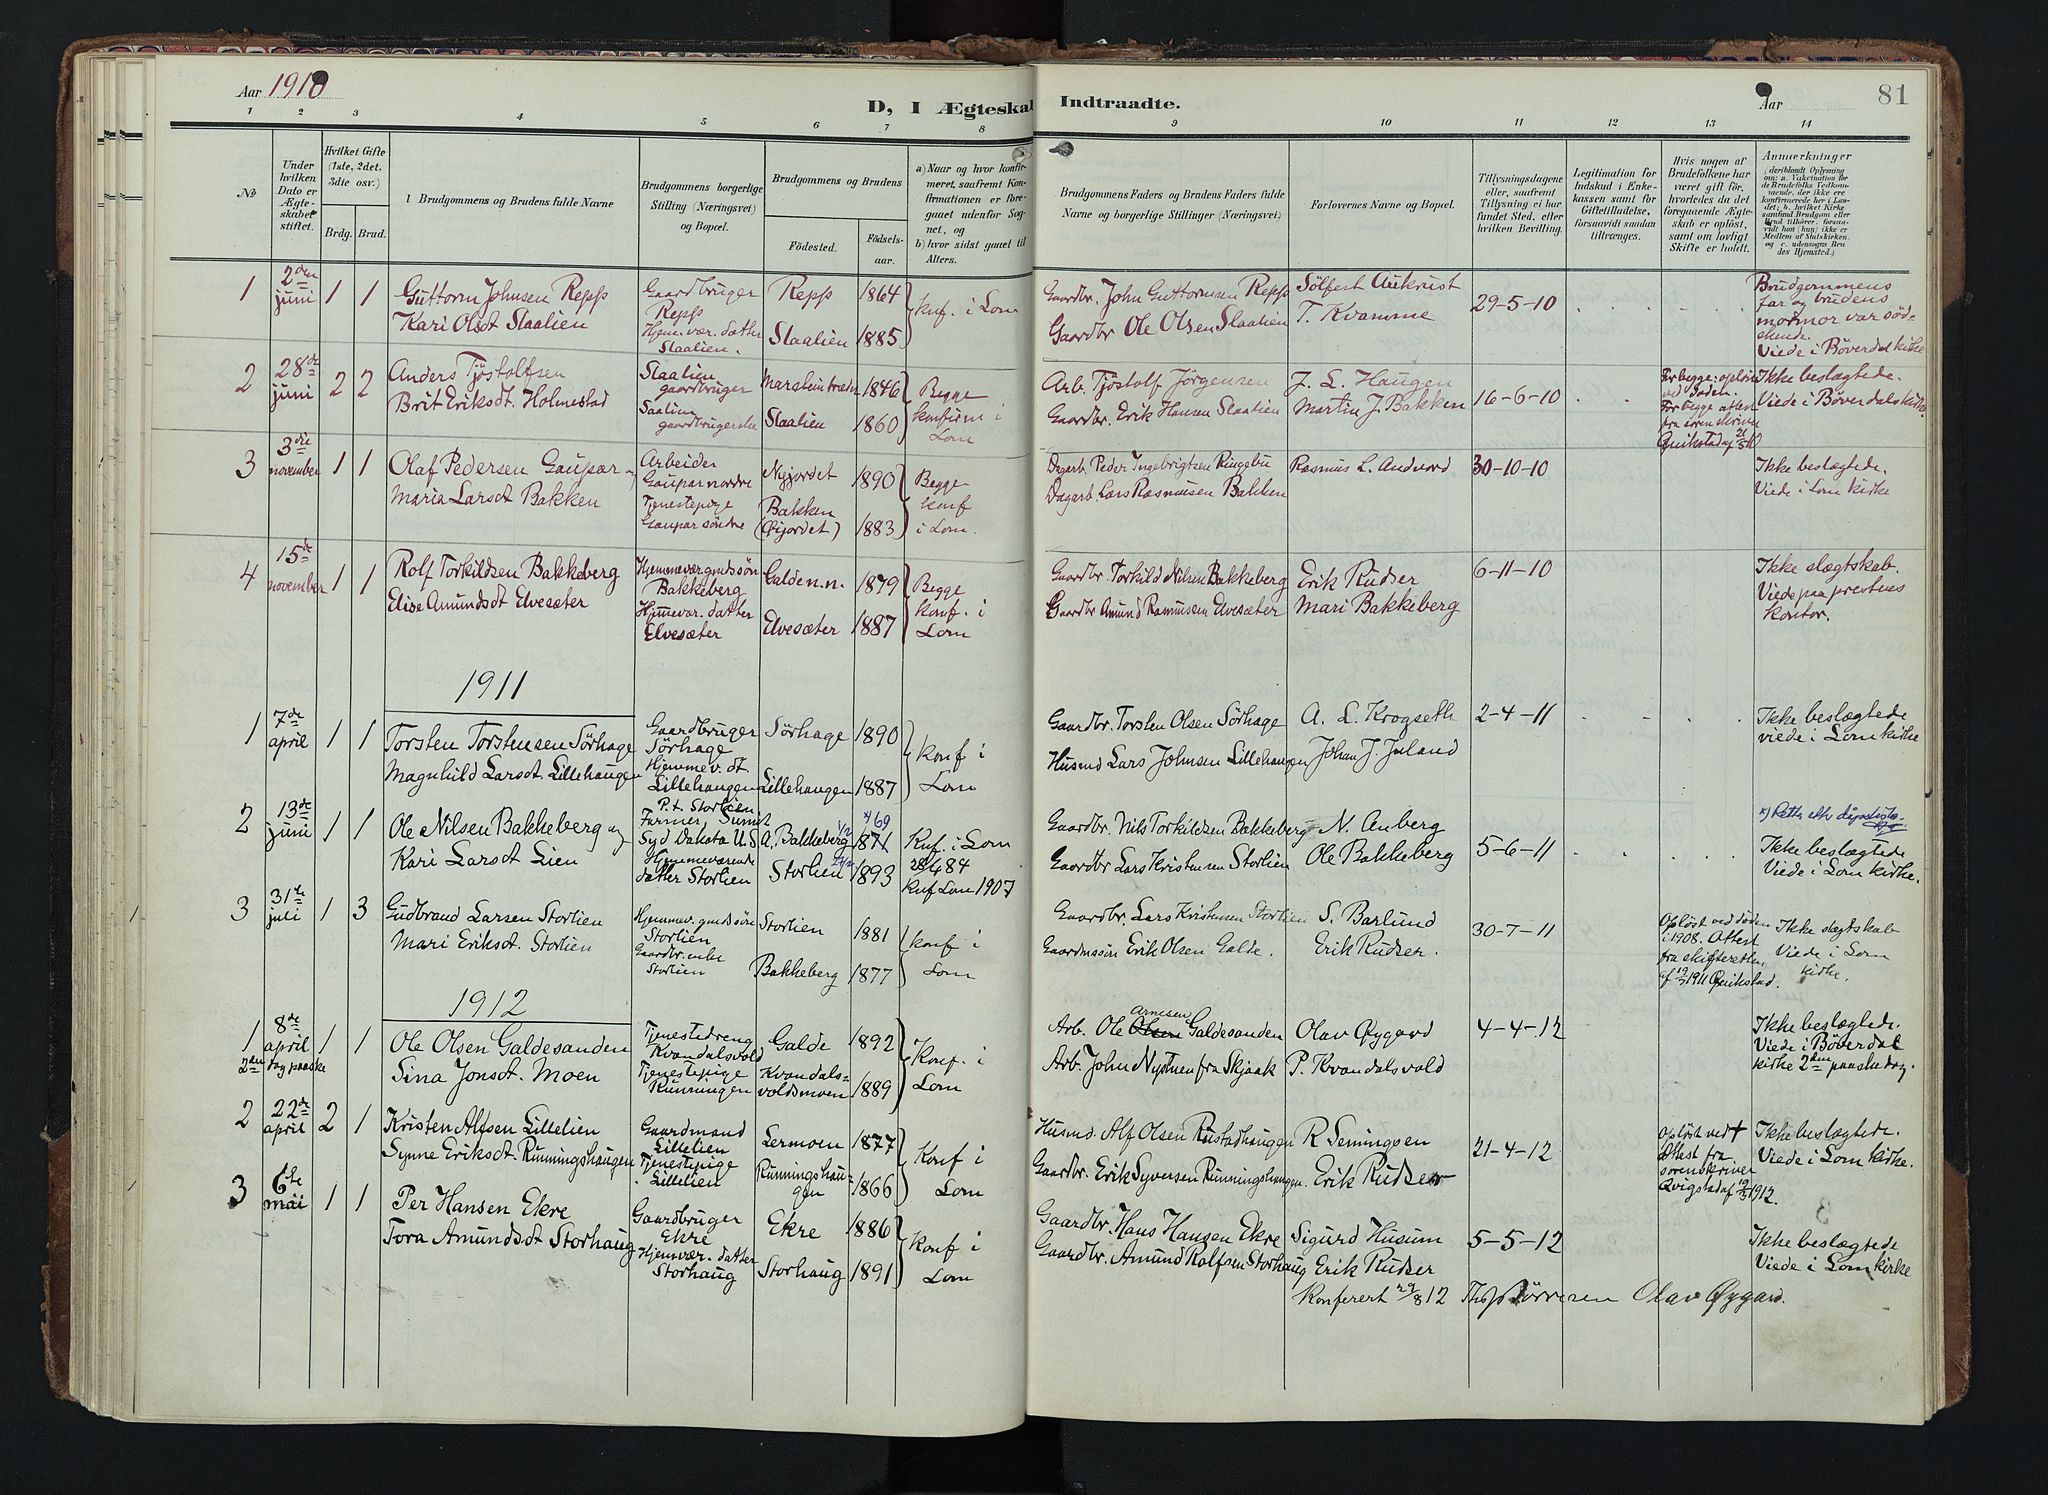 Aar 1910
D, I Ægteskab Indtraadte.
Aar
81
1 2 3 4 5 6 7 8 9 10 11 12 13 14
№
Under hvilken Dato er Ægteskabet stiftet.
Hvilket Gifte (1ste, 2det, 3die osv.)
Brdg. Brud.
Brudgommens og Brudens fulde Navne
Brudgommens borgerlige Stilling (Næringsvei) og Bopæl.
Brudgommens og Brudens
Födested. Födselsaar.
a) Naar og hvor konfirmeret, saafremt Konfirmationen er foregaaet udenfor Sognet, og
b) hvor sidst gaaet til Alters.
Brudgommens Faders og Brudens Faders fulde Navne og borgerlige Stillinger (Næringsvei)
Forlovernes Navne og Bopæl.
Tillysningsdagene eller, saafremt Tillysning ei har fundet Sted, efter hvilken Bevilling.
Legitimation for Indskud i Enkekassen samt for Giftetilladelse, forsaavidt saadan tiltrænges.
Hvis nogen af Brudefolkene har været gift för, hvorledes da det foregaaende Ægteskab er oplöst, samt om lovligt Skifte er holdt.
Anmærkninger
1 2den juni 1 1
Guttorm Johnsen Repp
Kari Olsdt Slaalien
Gaardbruger Repp
Hjem.vær. datter Slaalien.
Repp 1864
Slaalien 1885
Knf. i Lom
Gaardbr. John Guttormsen Repp
Gaardbr Ole Olsen Slaalien
Sölfest Aukrust
T. Kvamme
29-5-10
Brudgommens far og brudens mormor var sødskende.
Viede i Bøverdal kirke
2 28de juni 2 2
Anders Tjöstolfsen
Brit Eriksdt. Holmestad
Slaalien gaardbruger
Slaalien gaardbrugerske
1846
Slaalien 1860
Begge konfirm i Lom
Arb. Tjöstolf Jörgensen
Gaardbr. Erik Hansen Slaalien
J. L. Haugen
Martin J. Bakken
16-6-10
For begge: opløst ved døden.
For begge attest fra sorenskriver
Ikke beslægtede.
Viede i Bøverdals kirke.
3 3die november 1 1
Olaf Pedersen Gaupar og
Maria Larsdt Bakken
Arbeider Gaupar nordre
Tjenestepige Gaupar söndre
Nyjordet 1890
Bakken (Øijordet) 1883
Begge konf i Lom.
Dagarb. Peder Ingebrigtsen Ringebu
Dagarb. Lars Rasmusen Bakken
Rasmus L. Andvord
30-10-10
Ikke beslægtede.
Viede i Lom kirke
4 15de november 1 1
Rolf Torkildsen Bakkeberg
Elise Amundsdt Elvesæter
Hjemmevær. gmdssön Bakkeberg
Hjemevær. datter Elvesæter
Galde n.n. 1879
Elvesæter 1887
Begge konf. i Lom
Gaardbr. Torkild Nilsen Bakkeberg
Gaardbr Amund Rasmusen Elvesæter
Erik Rudser
Mari Bakkeberg
6-11-10
Ikke slægtskab.
Viede paa prestens kontor.
1911
1 7de april 1 1
Torsten Torstensen Sörhage
Magnhild Larsdt. Lillehaugen
Gaardbruger Sörhage
Hjemmev. dt. Lillehaugen
Sørhage 1890
Lillehaugen 1887
konf i Lom
Gaardbr. Torsten Olsen Sørhage
Husmd Lars Johnsen Lillehaugen
A. L. Krogseth
Johan J. Juland
2-4-11
Ikke beslægtede
viede i Lom kirke
2 13de juni 1 1
Ole Nilsen Bakkeberg og
Kari Larsdt Lien
P.t. Storlien
Farmer Sumit
Syd Dakota U.S.A.
Hjemmeværende datter Storlien
Bakkeberg 1871 69
Storlien 1893
Knf. i Lom
84
knf Lom 1907
Gaardbr. Nils Torkildsen Bakkeberg
Gaardbr Lars Kristensen Storlien
N. Anberg
Ole Bakkeberg
5-6-11
x) Rettet eft
Ikke beslægtede
Viede i Lom kirke.
3 31te juli 1 3
Gudbrand Larsen Storlien
Mari Eriksdt. Storlien
Hjemmev. gmdssön Storlien
Gaardbr. enke Storlien
Storlien 1881
Bakkeberg 1877
konf i Lom
Gaardbr. Lars Kristensen Storlien
Gaardmssön Erik Olsen Galde.
S. Barlund
Erik Rudser.
30-7-11
Opløst ved døden i 1908. Attest fra skifteretten af 19/7 1911 Qvikstad.
Ikke slægtskab
Viede i Lom kirke.
1912
1 8de april 1 1
2den dag paaske
Ole Olsen Galdesanden
Sina Jonsdt. Moen
Tjenestedreng Kvandalsvold
Tjenestepige Runningen
Galde 1892
Kvandalsvoldsmoen 1889
Konf. i Lom
Arb. Ole Olsen Arnesen Galdesanden
Arb. John Nystuen fra Skjaak
Olav Øygard
P. Kvandalsvold
4-4-12
Ikke beslægtede.
Viede i Bøverdal kirke 2den paaskedag.
2 22de april 2 1
Kristen Alfsen Lillelien
Synne Eriksdt. Runningshaugen
Gaardmand Lillelien
Tjenestepige Lillelien
Lermoen 1877
Runningshaugen 1866
Konf i Lom
Husmd. Alf Olsen Rustadhaugen
Gaardbr. Erik Syversen Runningshaugen.
R Semingsen
Erik Rudser
21-4-12
Opløst ved †
Attest fra sorenskriver Qvigstad af 19/3 1912.
Ikke beslægtede.
Viede i Lom kirke.
3 6te mai 1 1
Per Hansen Ekre
Tora Amundsdt Storhaug
Gaardbruger Ekre
Hjemvær. datter Storhaug
Ekre 1886
Storhaug 1891
konf i Lom
Gaardbr. Hans Hansen Ekre
Gaardbr. Amund Rolfsen Storhaug
Sigurd Husum
Erik Rudser
5-5-12
Ikke beslægtede
Viede i Lom kirke
Konferert 29/8 12 Ths Börresen Olav Øygard.